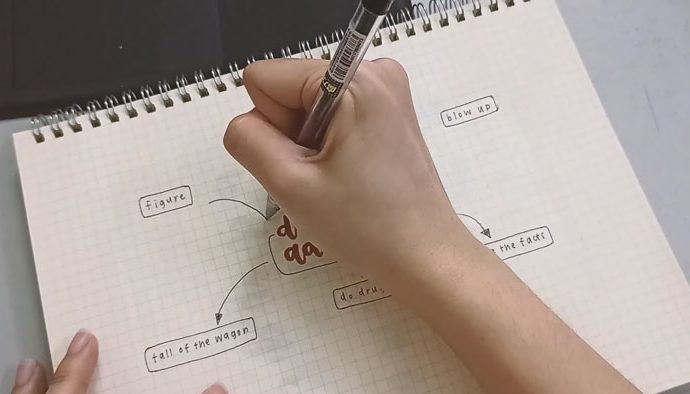 blow up
figure
d
da
the facts
do dru
fall of the wagon